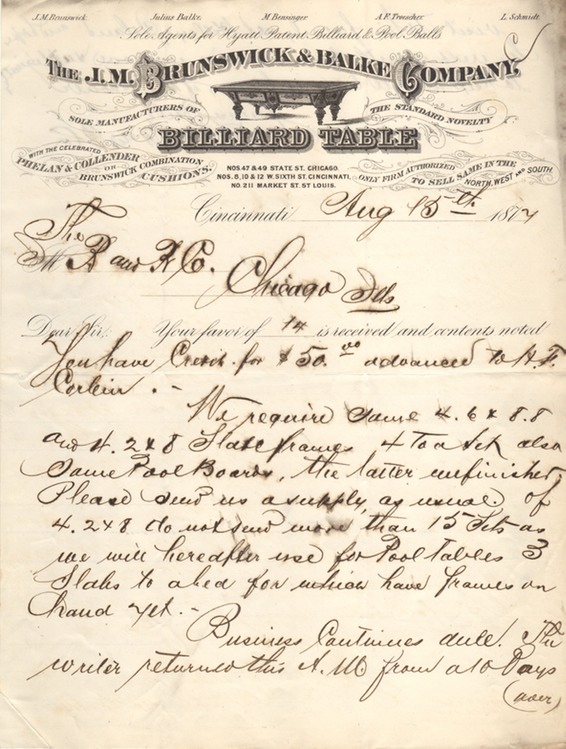 J. M. Brunswick. Julius Balke. M. Bensinger. A. F. Troescher. L. Schmidt.
Sole Agents for Hyatt Patent Billiard & Pool Balls
THE J. M. BRUNSWICK & BALKE COMPANY.
SOLE MANUFACTURERS OF THE STANDARD NOVELTY
BILLIARD TABLE
WITH THE CELEBRATED
PHELAN & COLLENDER
OR
BRUNSWICK COMBINATION
CUSHIONS.
NOS. 47 & 49 STATE ST. CHICAGO.
NOS. 8, 10 & 12 W. SIXTH ST. CINCINNATI.
NO. 211 MARKET ST. ST LOUIS.
ONLY FIRM AUTHORIZED
TO SELL SAME IN THE
NORTH, WEST AND SOUTH.
Cincinnati Aug 15th 187
The
B and B Co.
Chicago Ills
Dear Sir: Your favor of 14 is received and contents noted
You have Credit for $50.00 advanced to H. F.
Corbin. -
We require some 4.6 x 8.8
and 4.2 x 8 Slate frames 4 to a Set also
some Pool Boards, the latter unfinished,
Please send us a supply as usual. Of
4.2 x 8 do not send more than 15 Sets as
we will hereafter use for Pool Tables 3
Slabs to a bed for which have frames on
hand yet. -
Business Continues dull. The
writer returned this A.M from a 10 Days
(over)